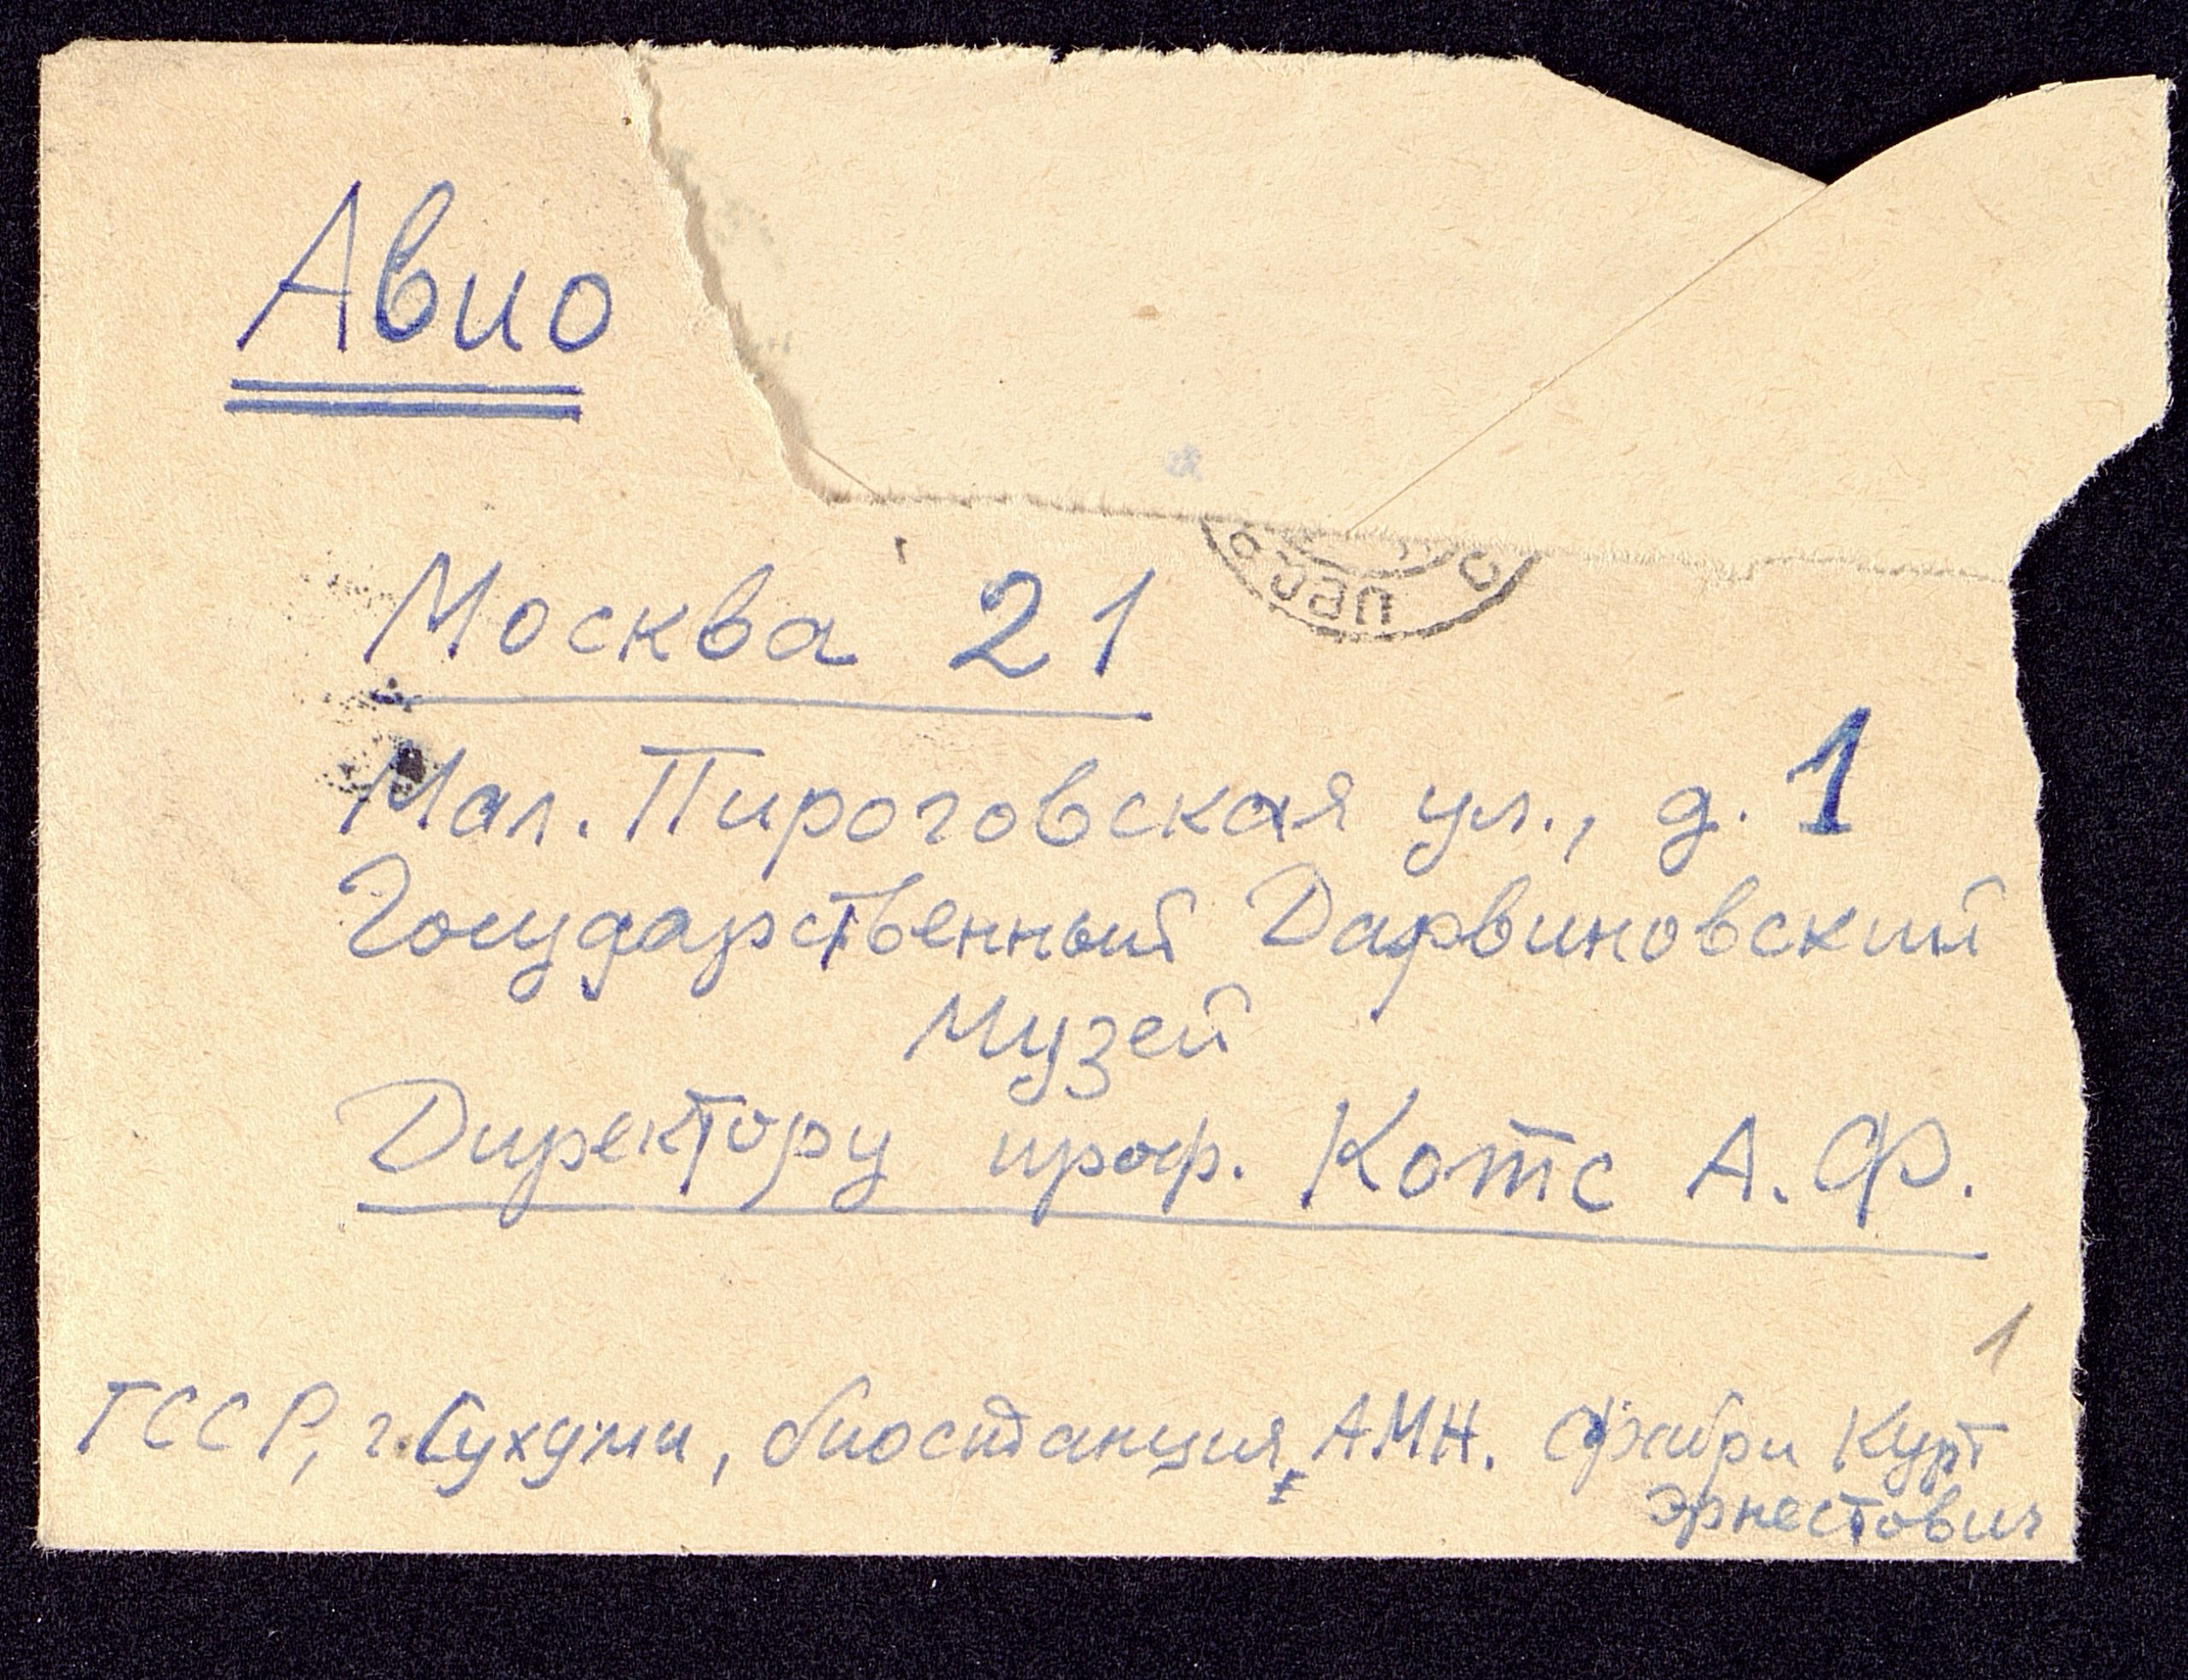 Авио
Москва 21
Мал. Пироговская ул., д. 1
Государственный Дарвиновский
Музей
Директору проф. Котс А. Ф.
1
ГССР, г. Сухуми, биостанция АМН. Фабри Курт
Эрнестович